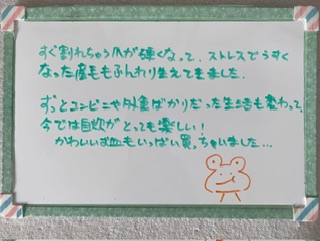 すぐ割れちゃう爪が硬くなって、ストレスでうすく
なった眉ももふんわり生えてきました。
ずっとコンビニや外食ばかりだった生活も変わって、
今では自炊がとっても楽しい！
かわいいお皿もいっぱい買っちゃいました…